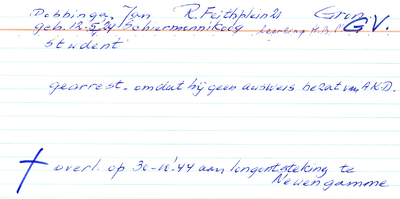 Dobbinga, Jan R. Feithplein 21 Gron.
geb. 12-5-24 Schiermonnikoog leerling H.B.S. G.V.
student
gearrest. omdat hij geen ausweis bezat van A.K.D.
† overl. op 30-10-'44 aan longontsteking te
Neuengamme